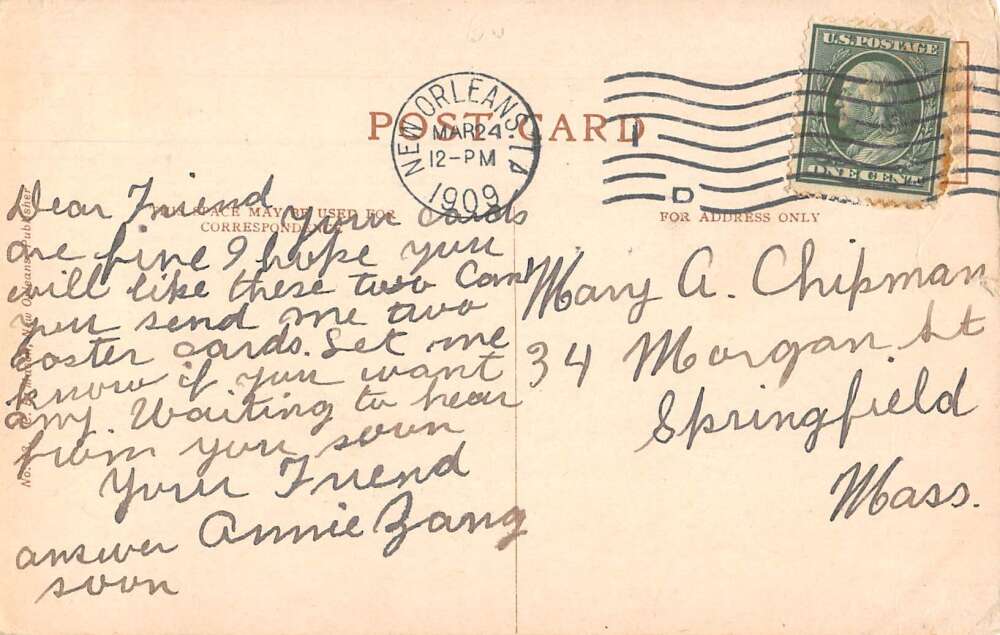 U.S. POSTAGE
ONE CENT
POST CARD
NEW ORLEANS, LA
MAR 24
12-PM
1909
D
THIS SPACE MAY BE USED FOR
CORRESPONDENCE
FOR ADDRESS ONLY
Dear Friend
your cards
are fine I hope you
will like these two Can
you send me two
Easter cards. Let me
know if you want
any. Waiting to hear
from you soon
Your Friend
Annie Zang
answer
soon
Mary A. Chipman
34 Morgan St
Springfield
Mass.
New Orleans, Publisher